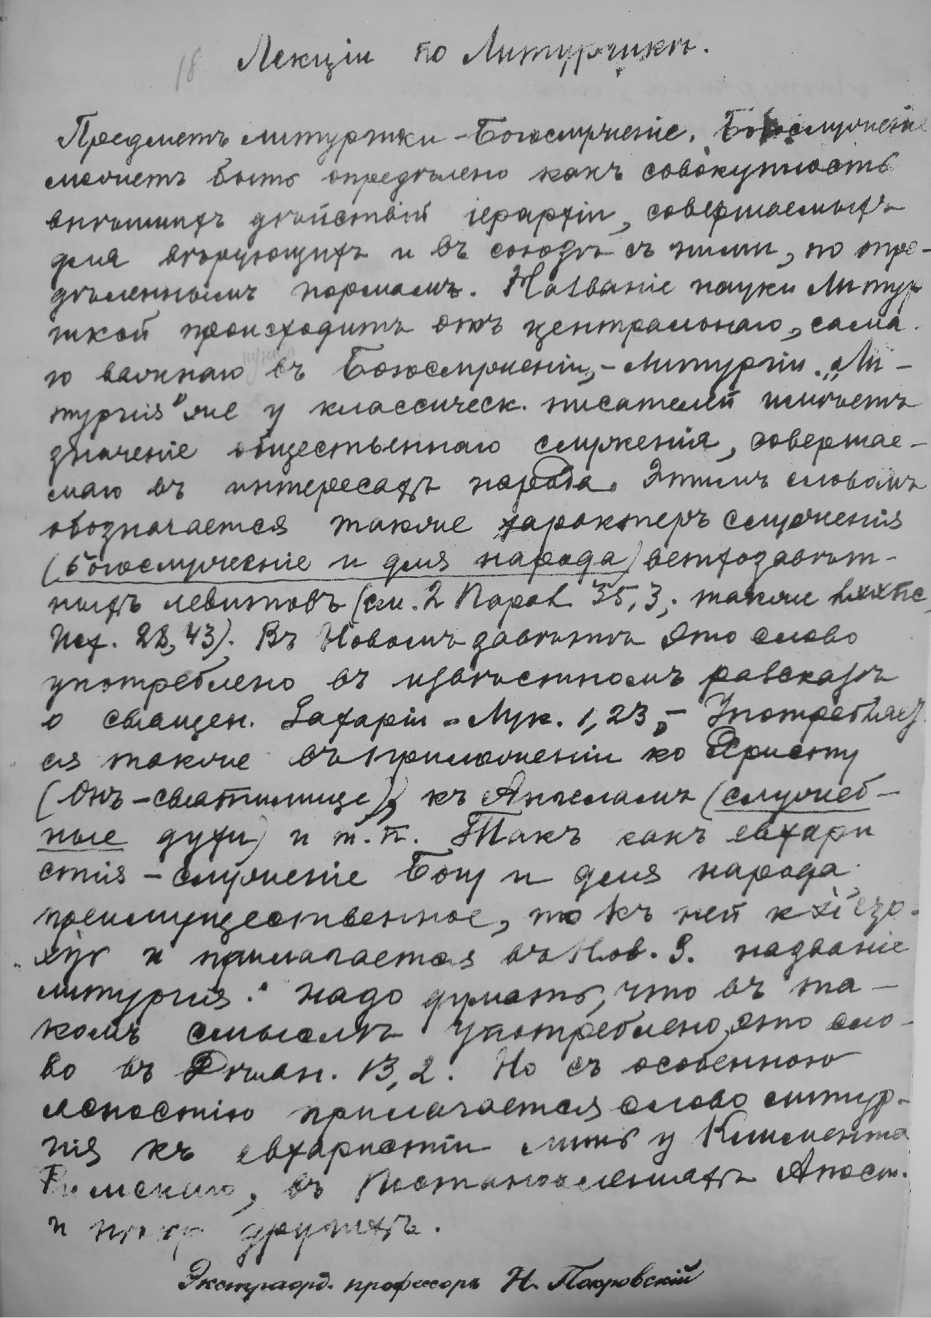 18 Лекціи по Литургикѣ.
Предметъ литургики – Богослуженіе. Богослуженіе
можетъ быть опредѣлено какъ совокупность
внѣшнихъ дѣйствій іерархіи, совершаемыхъ
для вѣрующихъ и въ союзѣ съ ними, по опре-
дѣленнымъ нормамъ. Названіе науки Литур-
гикой происходитъ отъ центральнаго, сама-
го важнаго въ Богослуженіи, – литургіи. „Ли-
тургія“ же у классическ. писателей имѣетъ
значеніе общественнаго служенія, совершае-
маго въ интересахъ народа. Этимъ словомъ
обозначается также характеръ служенія
(богослуженіе и для народа) ветхозавѣт-
ныхъ левитовъ (см. 2 Парал. 35, 3, также
Исх. 28, 43). Въ Новомъ завѣтѣ это слово
употреблено въ извѣстномъ разсказѣ
о священ. Захаріи – Лук. 1, 23, – Употребляет
ся также въ приложеніи ко Христу
(Онъ – святилище), къ Ангеламъ (служеб-
ные духи) и т. п. Такъ какъ евхари
стія – служеніе Богу и для народа
преимущественное, то къ ней
и прилагается въ Нов. З. названіе
литургія. Надо думать, что въ та-
комъ смыслѣ употреблено это сло-
во въ Дѣян. 13, 2. Но съ особенною
ясностію прилагается слово литур-
гія къ евхаристіи лишь у Климента
Римскаго, въ Постановленіяхъ Апост.
и другихъ.
Экстраорд. профессоръ Н. Покровскій